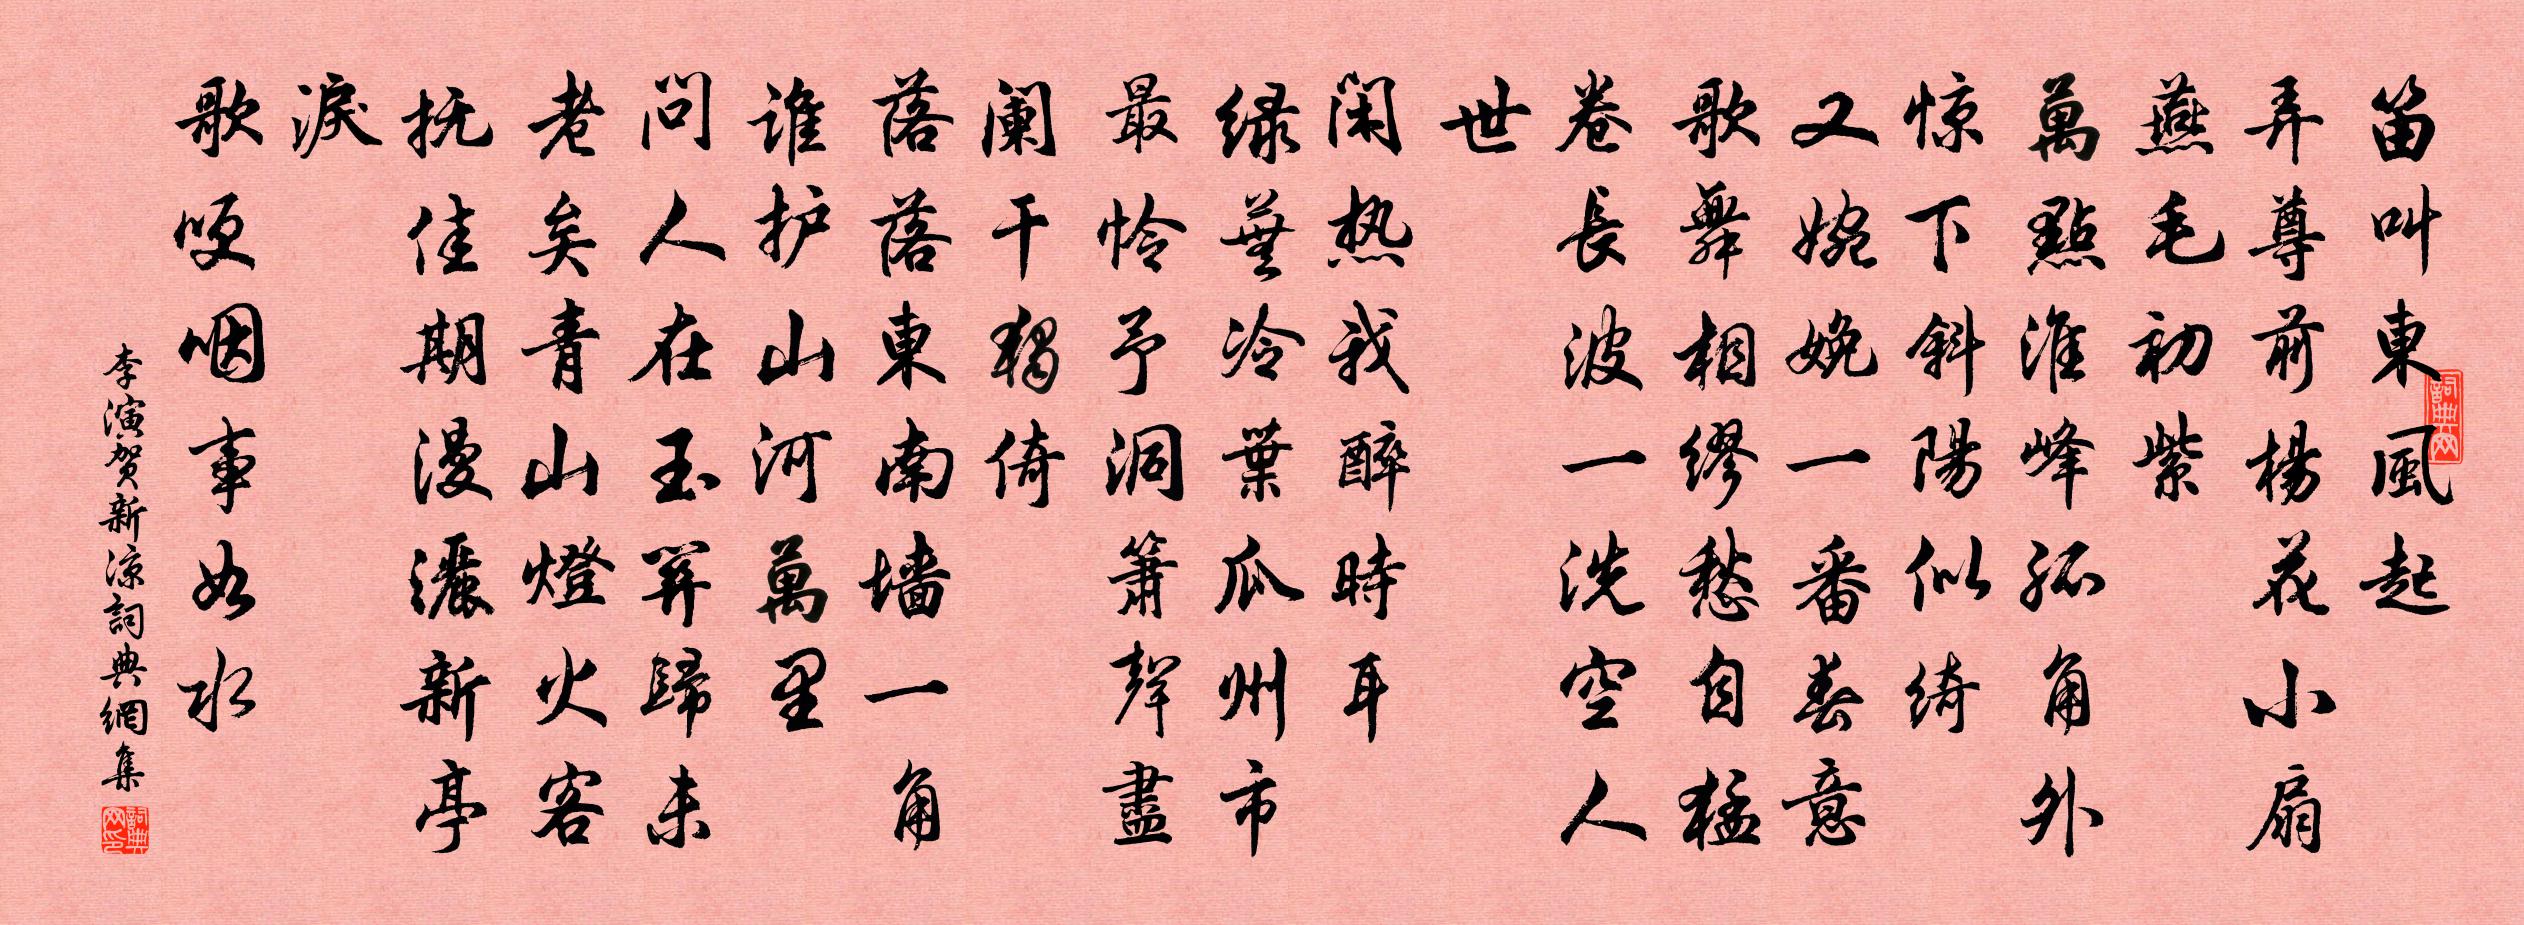 笛叫東風起
弄尊前楊花小扇
燕毛初紫
萬點淮峰孤角外
惊下斜陽似绮
又婉娩一番春意
歌舞相缪愁自猛
卷長波一洗空人
世
闲热我醉時耳
绿蕪冷葉瓜州市
最怜予洞箫聲盡
阑干独倚
落落東南墙一角
谁护山河萬里
问人在玉关歸未
老矣青山燈火客
抚佳期漫灑新亭
淚
歌哽咽事如水
李演贺新凉詞典網集
詞典网
詞典网印